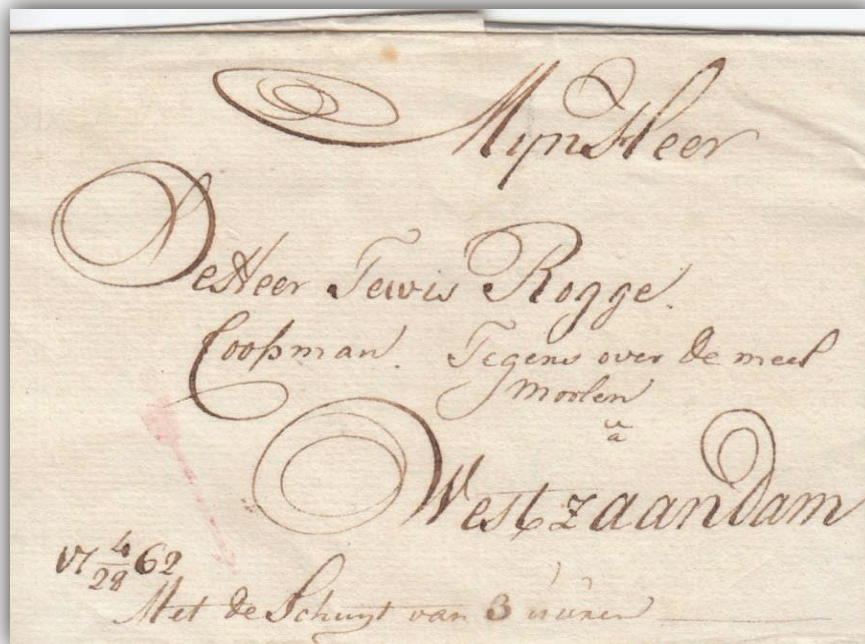 Mijn Heer
De Heer Tewis Rogge.
Coopman. Tegens over de meel
moolen
a
Westzaandam
17 4/28 62
Met de Schuyt van 3 uuren